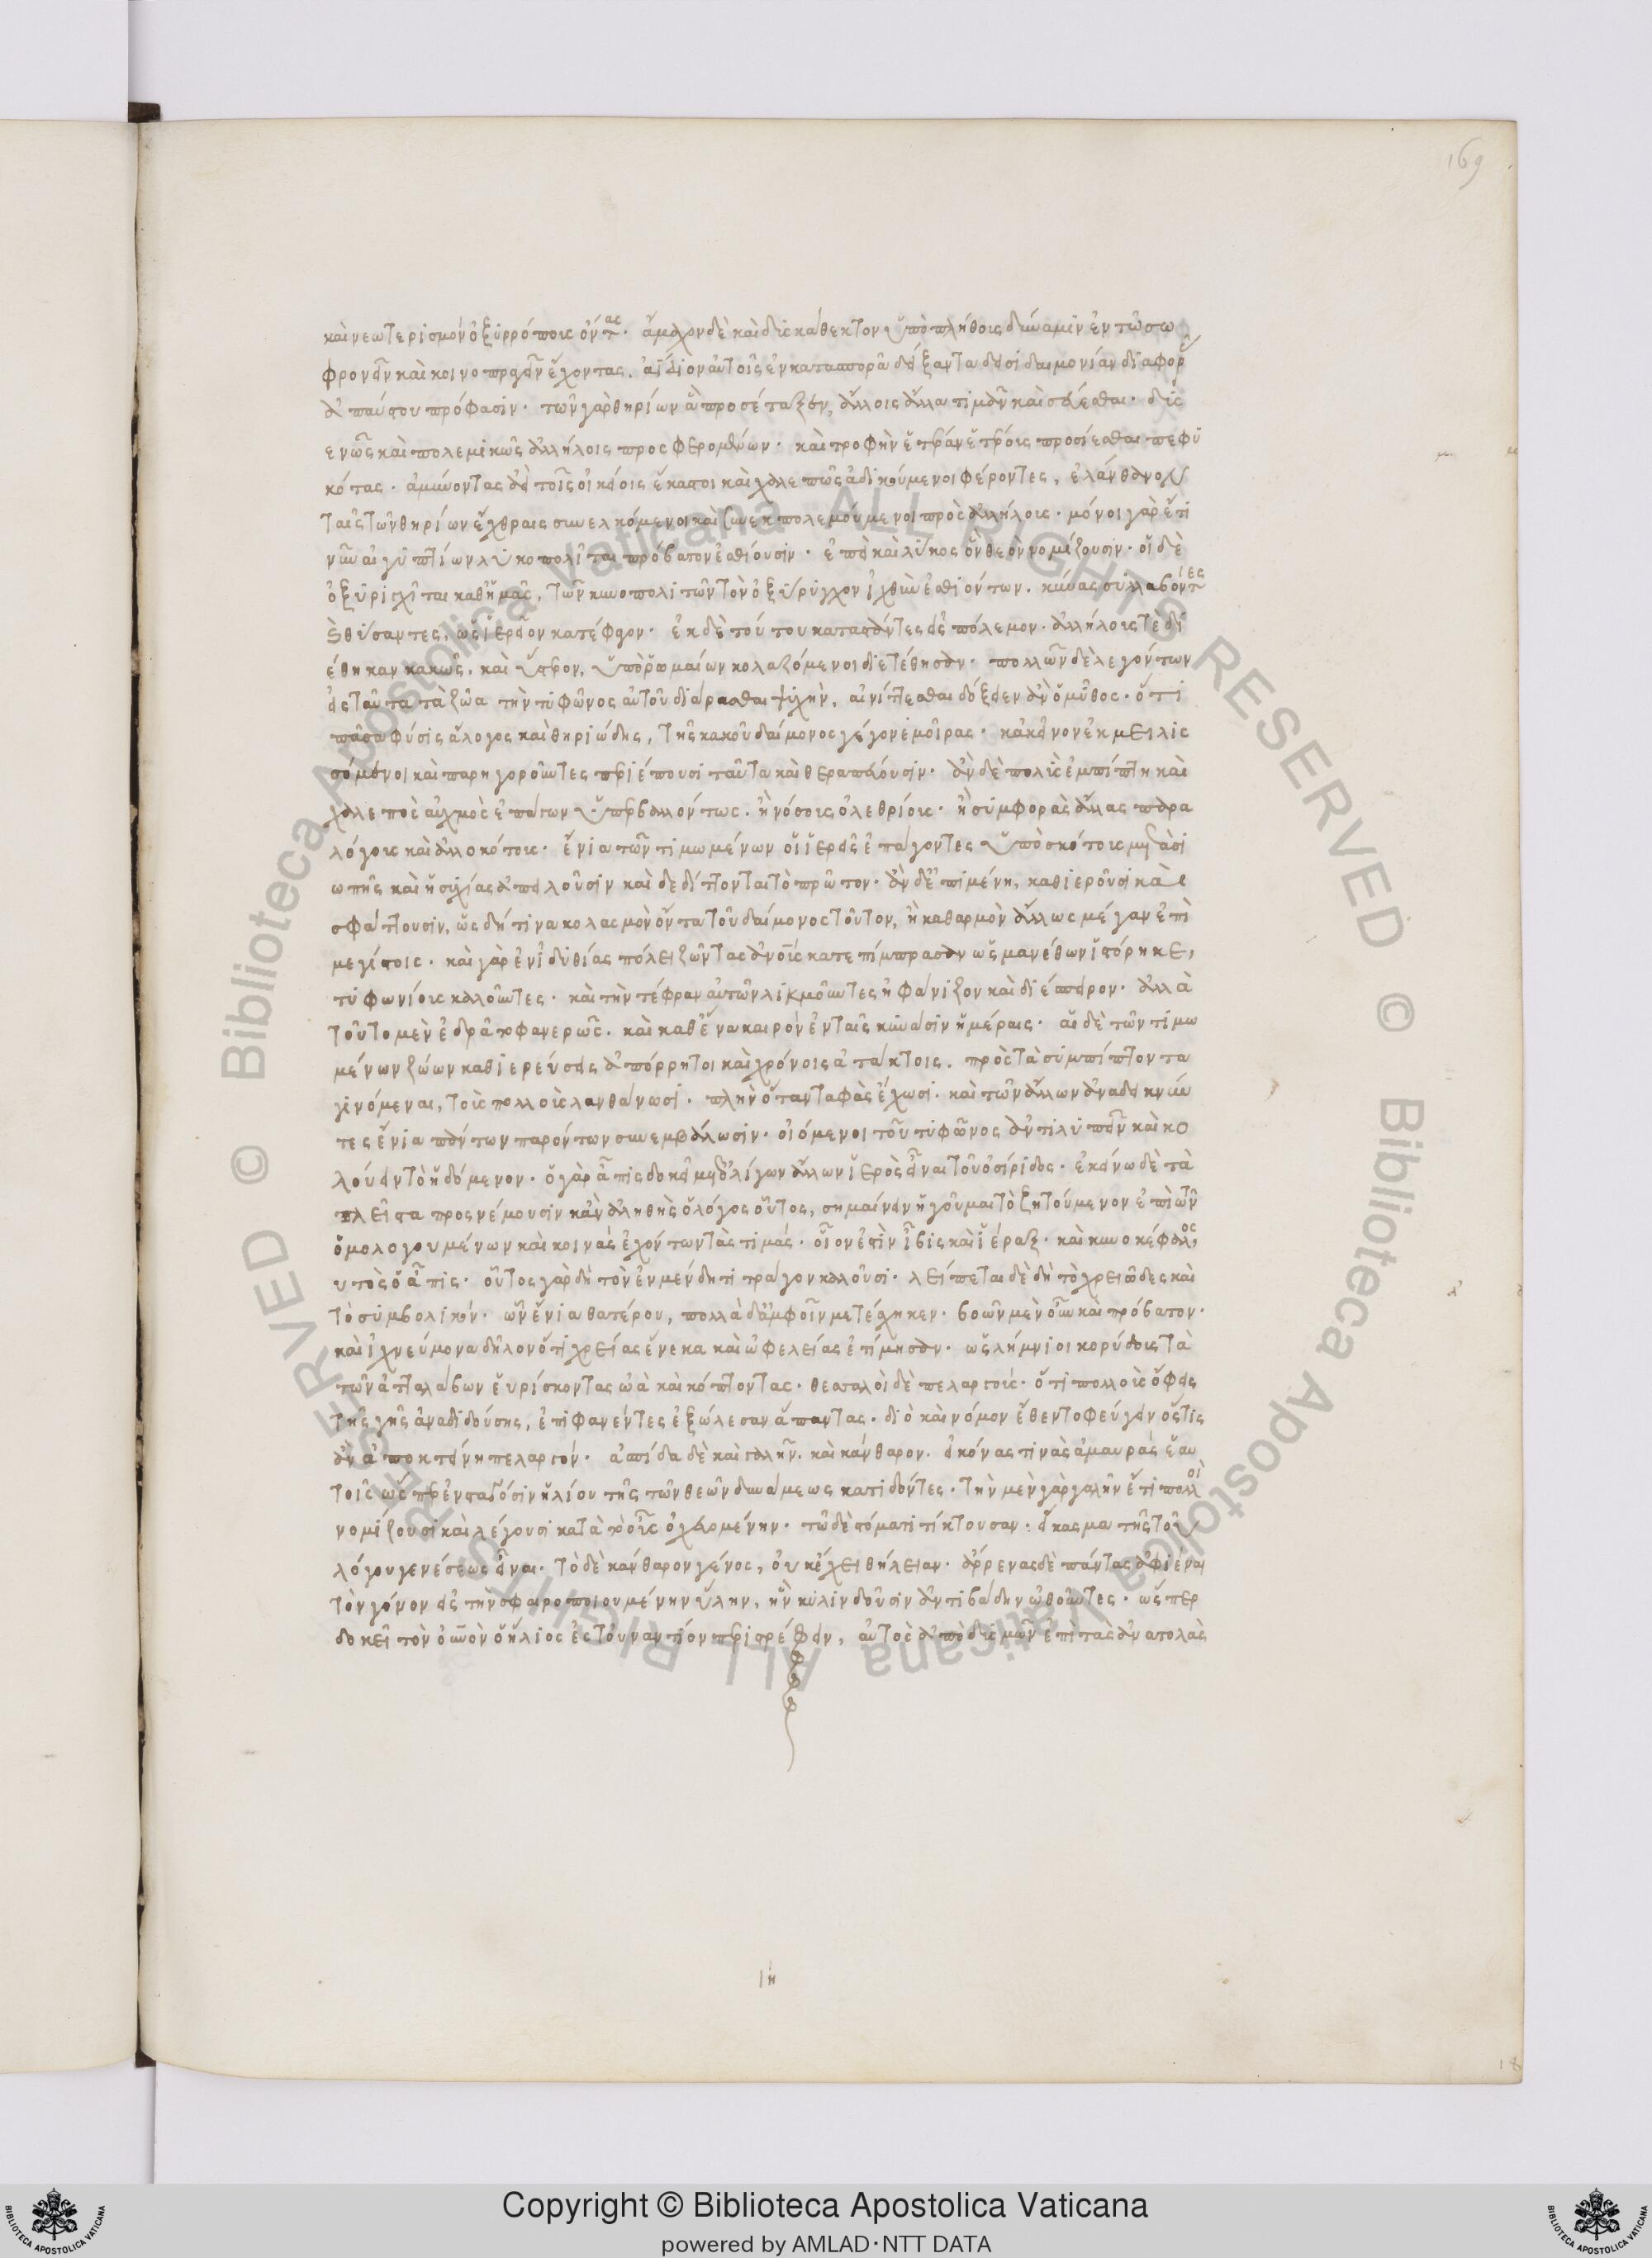 169
καὶ νεωτερισμὸν ὀξυρρόπους ὄντας· ἄμαχον δὲ καὶ δυσκάθεκτον ὑπὸ πλήθους δύναμιν ἐν τῷ σω
φρονεῖν καὶ κοινοπραγεῖν ἔχοντας. ἀΐδιον αὐτοῖς ἐγκατασπορᾶ δείξαντα δεισιδαιμονίαν διαφορᾶς
ἀπαύστου πρόφασιν· τῶν γὰρ θηρίων ἃ προσέταξεν, ἄλλοις ἄλλα τιμᾶν καὶ σέβεσθαι· δυσ
ενῶς καὶ πολεμικῶς ἀλλήλοις προσφερομένων· καὶ τροφὴν ἑτέραν ἑτέροις προσίεσθαι πεφυ
κότας· ἀμύνοντας δὲ τοῖς οἰκείοις ἕκαστοι καὶ χαλεπῶς ἀδικούμενοι φέροντες, ἐλάνθανον
ταῖς τῶν θηρίων ἔχθραις συνελκόμενοι καὶ συνεκπολεμούμενοι πρὸς ἀλλήλους· μόνοι γὰρ ἔτι
νῦν αἰγυπτίων λυκοπολῖται πρόβατον ἐσθίουσιν· ἐπεὶ καὶ λύκος ὃν θεὸν νομίζουσιν· οἱ δὲ
ὀξυριγχῖται καθ' ἡμᾶς, τῶν κυνοπολιτῶν τὸν ὀξύρυγχον ἰχθὺν ἐσθιόντων. κύνας συλλαβόντες
καὶ θύσαντες, ὡς ἱερεῖον κατέφαγον· ἐκ δὲ τούτου καταστάντες εἰς πόλεμον. ἀλλήλους τε δι
έθηκαν κακῶς, καὶ ὕστερον, ὑπὸ ῥωμαίων κολαζόμενοι διετέθησαν· πολλῶν δὲ λεγόντων
εἰς ταῦτα τὰ ζῶα τὴν τυφῶνος αὐτοῦ διαρᾶσθαι ψυχὴν, αἰνίττεσθαι δόξειεν ἂν ὁ μῦθος· ὅτι
πᾶσα φύσις ἄλογος καὶ θηριώδης, τῆς κακοῦ δαίμονος γέγονε μοίρας· κἀκεῖνον ἐκμειλισ
σόμενοι καὶ παρηγοροῦντες περιέπουσι ταῦτα καὶ θεραπεύουσιν· ἂν δὲ πολὺς ἐμπίπτη καὶ
χαλεπὸς αὐχμὸς ἐπάγων ὑπερβαλλόντως. ἢ νόσους ὀλεθρίους· ἢ συμφορὰς ἄλλας παρα
λόγους καὶ ἀλλοκότους· ἔνια τῶν τιμωμένων οἱ ἱερεῖς ἐπάγοντες ὑπὸ σκότους μετὰ σι
ωπῆς καὶ ἡσυχίας ἀπειλοῦσιν καὶ δεδίττονται τὸ πρῶτον· ἂν δ' ἐπιμένη, καθιεροῦσι καὶ
σφάττουσιν, ὡς δή τινα κολασμὸν ὄντα τοῦ δαίμονος τοῦτον, ἢ καθαρμὸν ἄλλως μέγαν ἐπὶ
μεγίστοις· καὶ γὰρ ἐν ἰδυθίας πόλει ζῶντας ἀνοὺς κατεπίμπρασαν ὡς μανέθων ἱστόρηκε,
τυφωνίους καλοῦντες· καὶ τὴν τέφραν αὐτῶν λικμοῦντες ἠφάνιζον καὶ διέσπειρον· ἀλλὰ
τοῦτο μὲν ἐδρᾶτο φανερῶς. καὶ καθ' ἕνα καιρὸν ἐν ταῖς κύνασιν ἡμέραις· αἱ δὲ τῶν τιμω
μένων ζώων καθιερεύσεις ἀπόρρητοι καὶ χρόνοις ἀτάκτοις. πρὸς τὰ συμπίπτοντα
γινόμεναι, τοὺς πολλοὺς λανθάνωσι· πλὴν ὅταν ταφὰς ἔχωσι· καὶ τῶν ἄλλων ἀναδεικνύν
τες ἔνια πάντων παρόντων συνεμβάλωσιν· οἰόμενοι τοῦ τυφῶνος ἀντιλυπεῖν καὶ κο
λούειν τὸ ἡδόμενον· ὁ γὰρ ἆπις δοκεῖ μετ' ὀλίγων ἄλλων ἱερὸς εἶναι τοῦ ὀσίριδος· ἐκείνω δὲ τὰ
πλεῖστα προσνέμουσιν κἂν ἀληθὴς ὁ λόγος οὗτος, σημαίνειν ἡγοῦμαι τὸ ζητούμενον ἐπὶ τῶν
ὁμολογουμένων καὶ κοινὰς ἐχόντων τὰς τιμάς· οἷον ἐστὶν ἶβις καὶ ἱέραξ· καὶ κυνοκέφαλος,
υτὸς ὁ ἆπις· οὕτος γὰρ δὴ τὸν ἐν μένδητι τράγον καλοῦσι· λείπεται δὲ δὴ τὸ χρειῶδες καὶ
τὸ συμβολικόν· ὧν ἔνια θατέρου, πολλὰ δ' ἀμφοῖν μετέσχηκεν· βοῶν μὲν οὖν καὶ πρόβατον·
καὶ ἰχνεύμονα δῆλον ὅτι χρείας ἕνεκα καὶ ὠφελείας ἐτίμησαν· ὡς λήμνιοι κορύδους τὰ
τῶν ἀτταλάβων εὑρίσκοντας ὠὰ καὶ κόπτοντας· θεσσαλοὶ δὲ πελαργούς· ὅτι πολλοὺς ὄφεις
τῆς γῆς ἀναδιδούσης, ἐπιφανέντες ἐξώλεσαν ἅπαντας· διὸ καὶ νόμον ἔθεντο φεύγειν ὅστις
ἂν ἀποκτείνη πελαργόν· ἀσπίδα δὲ καὶ γαλῆν. καὶ κάνθαρον. εἰκόνας τινὰς ἀμαυρὰς ἑαυ
τοῖς ὥσπερ ἐν σταγόσιν ἡλίου τῆς τῶν θεῶν δυνάμεως κατιδόντες· τὴν μὲν γὰρ γαλῆν ἔτι πολλοὶ
νομίζουσι καὶ λέγουσι κατὰ τὸ οὖς ὀχευομένην· τῶ δὲ στόματι τίκτουσαν· εἴκασμα τῆς τοῦ
λόγου γενέσεως εἶναι· τὸ δὲ κάνθαρον γένος, οὐκ ἔχει θήλειαν· ἄρρενας δὲ πάντας ἀφιέναι
τὸν γόνον εἰς τὴν σφαιροποιουμένην ὕλην, ἣν κυλινδοῦσιν ἀντιβάδην ὠθοῦντες· ὥσπερ
δοκεῖ τὸν οὐνὸν ὁ ἥλιος ἐς τοὐναντίον περιστρέφειν, αὐτὸς ἀπὸ δυσμῶν ἐπὶ τὰς ἀνατολὰς
ιη
18
© Biblioteca Apostolica Vaticana ALL RIGHTS RESERVED © Biblioteca Apostolica Vaticana ALL RIGHTS RESERVED
Copyright © Biblioteca Apostolica Vaticana
powered by AMLAD·NTT DATA
BIBLIOTECA APOSTOLICA VATICANA
BIBLIOTECA APOSTOLICA VATICANA